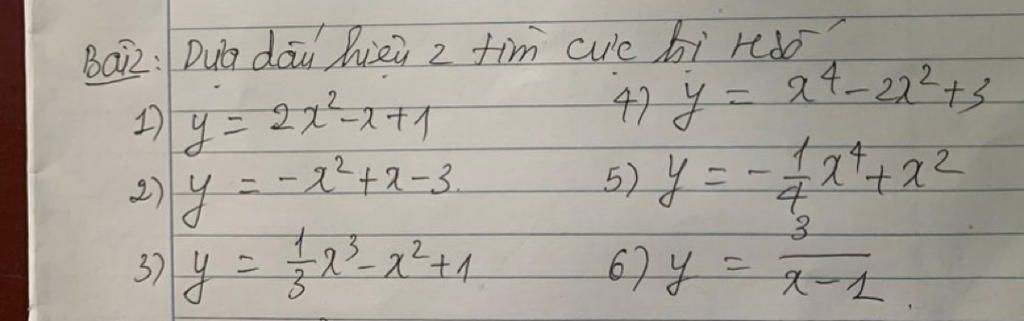 Bài2: Dựa dấu hiệu 2 tìm cực trị h/số
1) y = 2x² - x + 1
4) y = x⁴ - 2x² + 3
2) y = -x² + x - 3.
5) y = -1/4 x⁴ + x²
3) y = 1/3 x³ - x² + 1
6) y = 3/(x - 1).